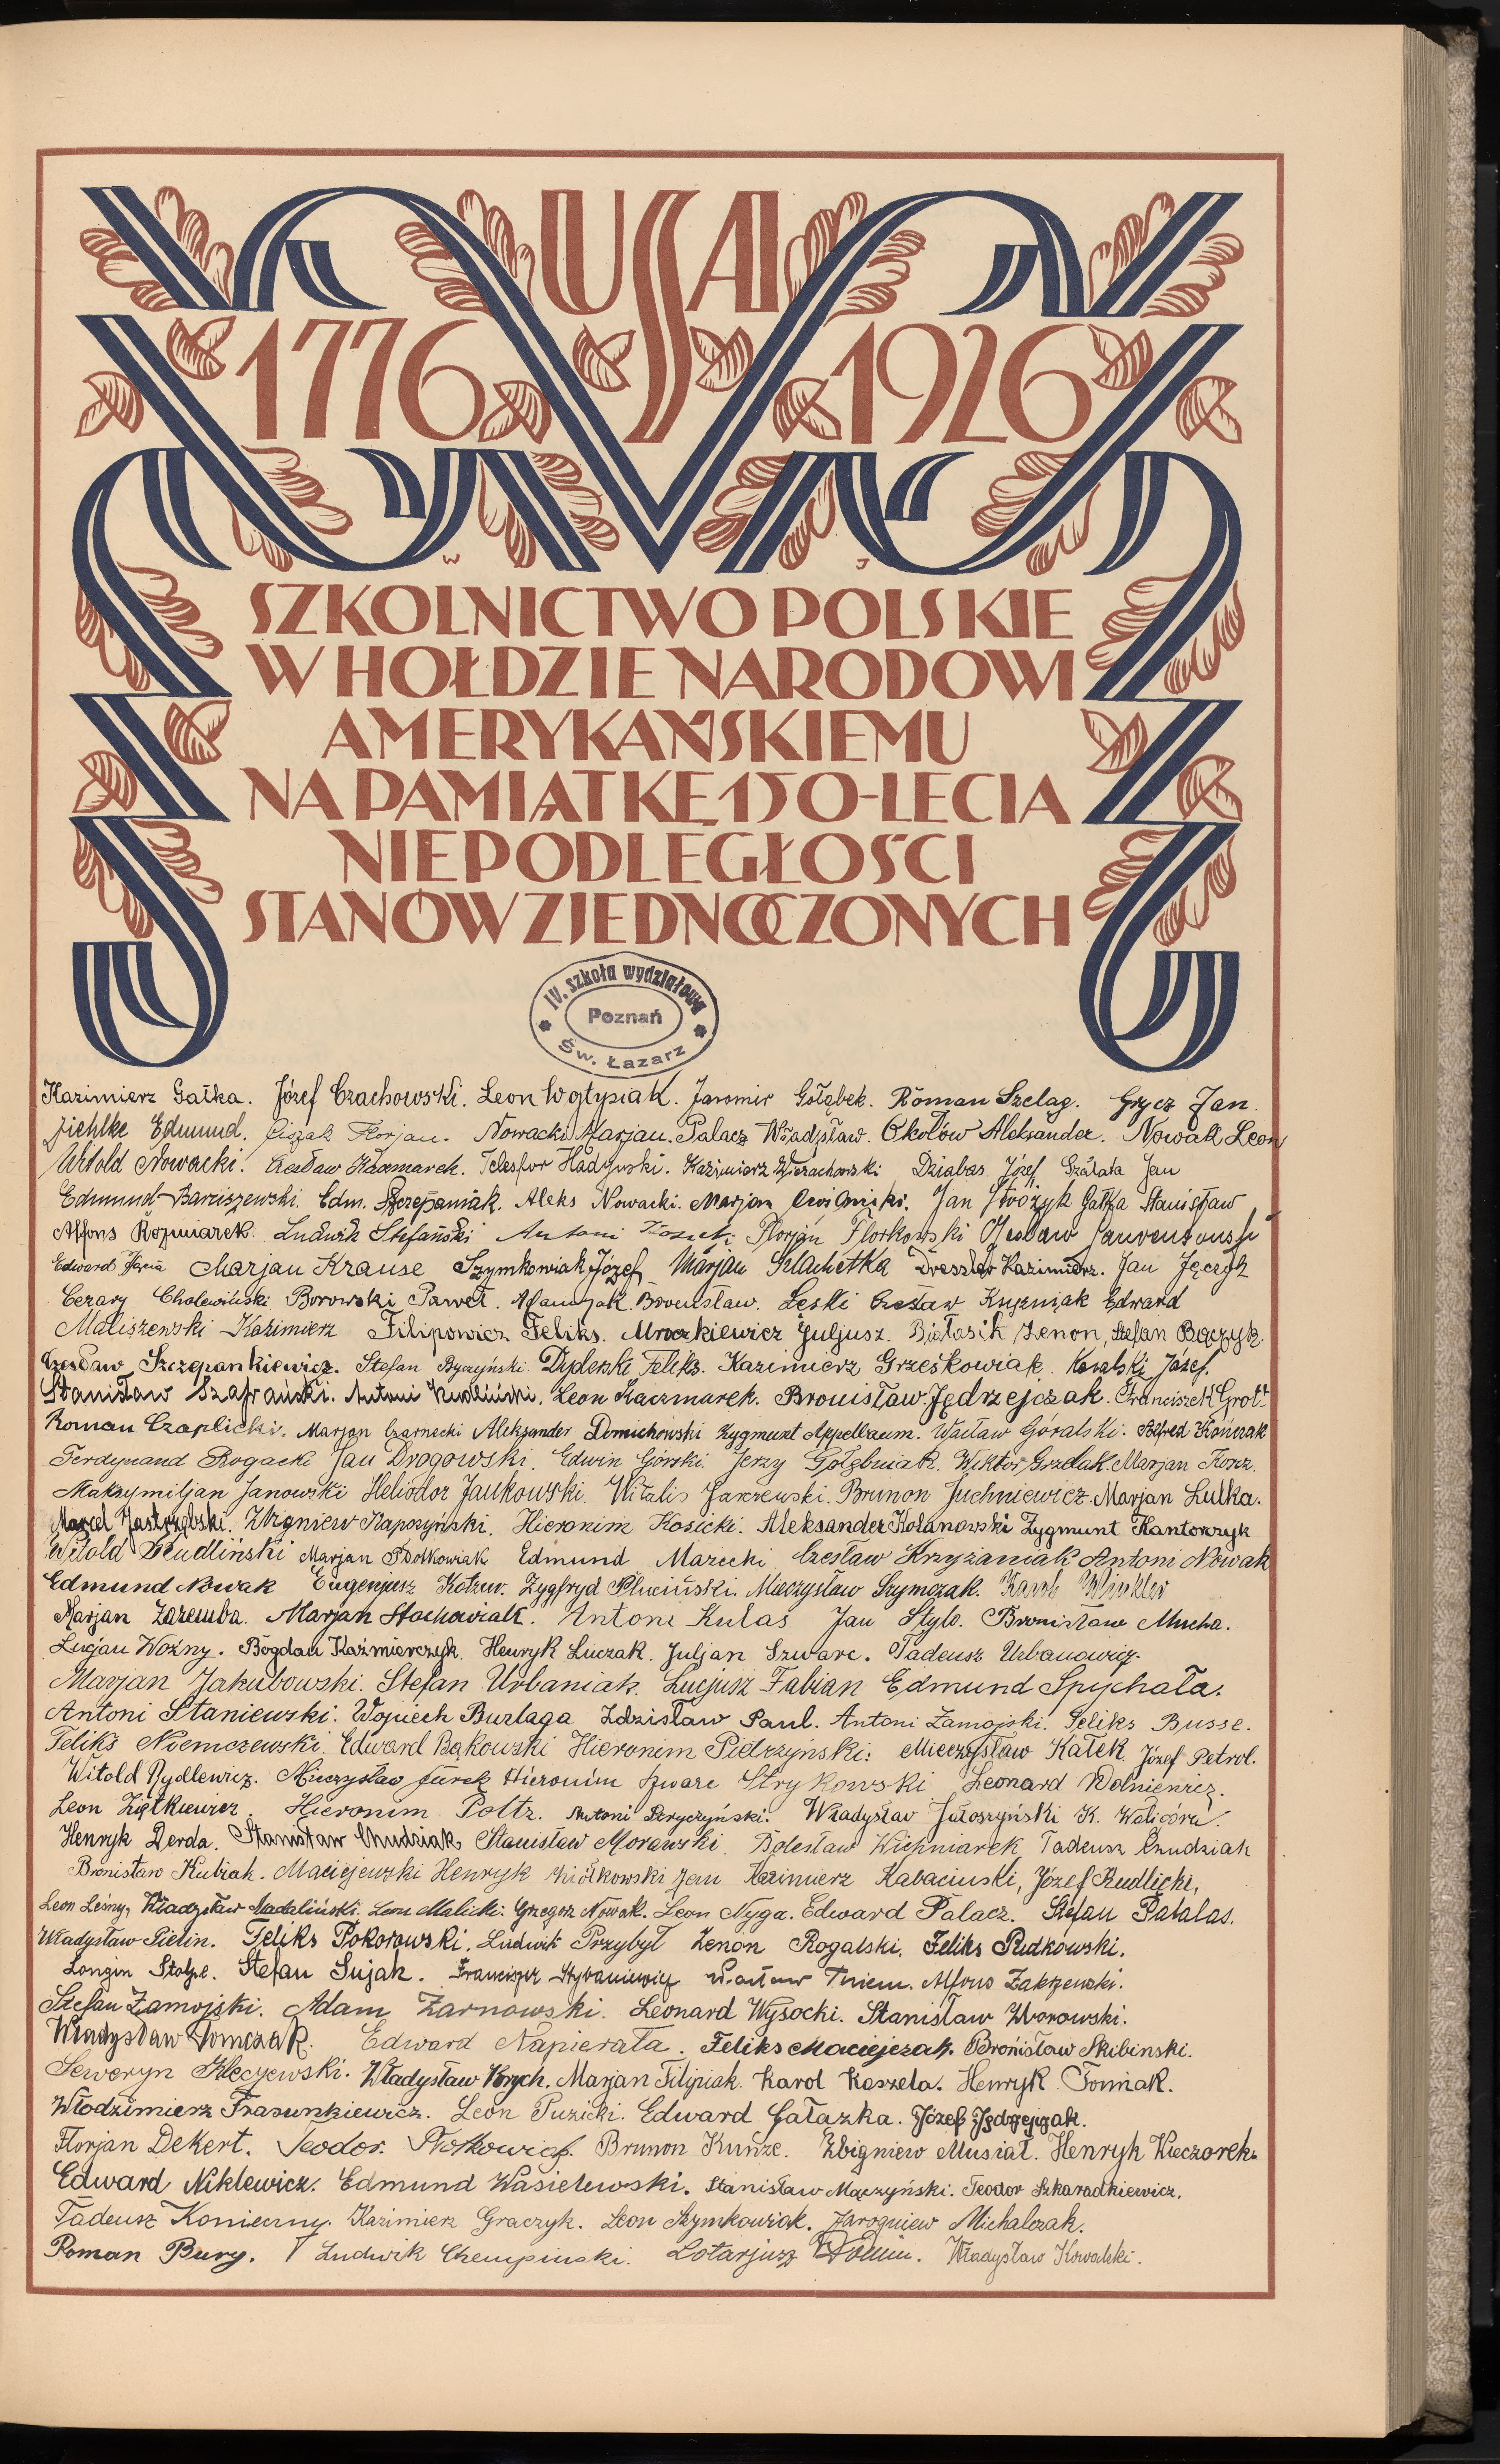 USA
1776 1926
W J
SZKOLNICTWO POLSKIE
W HOŁDZIE NARODOWI
AMERYKAŃSKIEMU
NA PAMIĄTKĘ 150-LECIA
NIEPODLEGŁOŚCI
STANÓW ZJEDNOCZONYCH
IV. szkoła wydziałowa
Poznań
Św. Łazarz
Kazimierz Gałka. Józef Czachowski. Leon Wojtysiak. Jaromir Gołąbek. Roman Szeląg. Grycz Jan.
Jichlke Edmund. Florjan. Nowacki Marjan. Palacz Władysław. Okołów Aleksander. Nowak Leon
Witold Nowacki. Czesław Kaczmarek. Telesfor Kazimierz Wierachowski Dziabas Józef Szałata Jan
Edmund Barciszewski. Edm. Szczepaniak. Aleks Nowacki. Marjan Jan Gałka Stanisław
Alfons Rozmiarek. Ludwik Stefański Antoni Florjan Florkowski
Edward Marjan Krause Szymkowiak Józef Marjan Szlachetka Dreszler Kazimierz. Jan
Cezary Cholewiński Borowski Paweł. Bronisław. Łęski Czesław Kuźniak Edward
Maliszewski Kazimierz Filipowicz Feliks. Mroczkiewicz Juljusz. Białasik Zenon, Stefan Bączyk.
Czesław Szczepankiewicz. Stefan Byczyński. Feliks. Kazimierz Grześkowiak. Kowalski Józef.
Stanisław Szafrański. Antoni Leon Kaczmarek. Bronisław Jędrzejczak. Franciszek Grott
Roman Czaplicki. Marjan Czarnecki Aleksander Domichowski Zygmunt Appelbaum. Wacław Góralski. Alfred Kończak
Ferdynand Rogacki Jan Drogowski. Edwin Górski. Jerzy Gołębniak. Wiktor Grzelak. Marjan
Maksymiljan Janowski Heliodor Jankowski. Witalis Jarzewski. Brunon Juchniewicz. Marjan Lulka.
Marcel Jastrzębski. Zbigniew Kapczyński. Hieronim Kosicki. Aleksander Kolanowski Zygmunt Kantorczyk
Witold Marjan Edmund Marecki Czesław Krzyżaniak Antoni Nowak
Edmund Nowak Eugenjusz Zygfryd Pluciński. Mieczysław Szymczak. Karol Winkler
Marjan Zaremba. Marjan Stachowiak. Antoni Kulas Jan Stylo. Bronisław Mucha.
Lucjan Woźny. Bogdan Kaźmierczyk. Henryk Luczak. Juljan Szwarc. Tadeusz Urbanowicz.
Marjan Jakubowski. Stefan Urbaniak. Lucjusz Fabian Edmund Spychała.
Antoni Staniewski. Wojciech Burlaga Zdzisław Paul. Antoni Zamojski. Feliks Busse.
Feliks Niemczewski. Edward Bąkowski Hieronim Pietrzyński. Mieczysław Kałek. Józef Petrol.
Witold Rydlewicz. Mieczysław Jurek Hieronim Szwarc Strykowski Leonard Wolniewicz.
Leon Ziętkiewicz. Hieronim Poltz. Antoni Stryczyński. Władysław Jałoszyński K. Waligóra.
Henryk Derda. Stanisław Chudziak. Stanisław Morawski. Bolesław Wichniarek Tadeusz Czudziak
Bronisław Kubiak. Maciejewski Henryk Ziółkowski Jan Kazimierz Kabaciński, Józef Rudlicki,
Leon Leśny, Władysław Madaliński. Leon Malicki. Grzegorz Nowak. Leon Nyga. Edward Palacz. Stefan Patalas.
Władysław Pielin. Feliks Pokorowski. Ludwik Przybył Zenon Rogalski. Feliks Rudkowski.
Longin Stolpe. Stefan Sujak. Franciszek Stybaniewicz Wacław Thiem. Alfons Zakrzewski.
Stefan Zamojski. Adam Żarnowski. Leonard Wysocki. Stanisław Worowski.
Władysław Tomczak. Edward Napierała. Feliks Maciejczak. Bronisław Skibinski.
Seweryn Kleczewski. Władysław Krych. Marjan Filipiak. Karol Kaszela. Henryk Tomiak.
Włodzimierz Frasunkiewicz. Leon Puzicki. Edward Gałązka. Józef Jędrzejczak.
Florjan Dekert. Teodor Brunon Kunze. Zbigniew Musiał. Henryk Wieczorek.
Edward Niklewicz. Edmund Wasielewski. Stanisław Mączyński. Teodor Szkaradkiewicz.
Tadeusz Konieczny. Kazimierz Graczyk. Leon Szymkowiak. Jarogniew Michalczak.
Roman Bury. Ludwik Chempinski. Lotarjusz Władysław Kowalski.